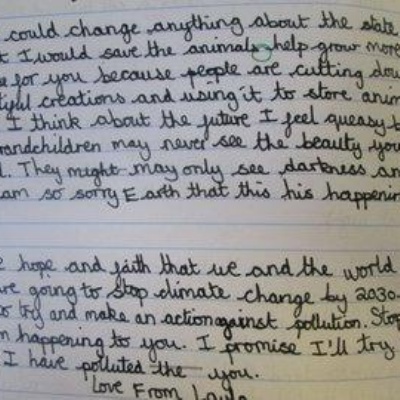 could change anything about the state
I would save the animals help grow more
for you because people are cutting dow
creations and using it to store anim
I think about the future I feel queasy
grandchildren may never see the beauty you
They might may only see darkness an
am so sorry Earth that this his happenin
hope and faith that we and the world
are going to stop climate change by 2030
try and make an action against pollution. Stop
happening to you. I promise I'll try
I have polluted the you.
Love From